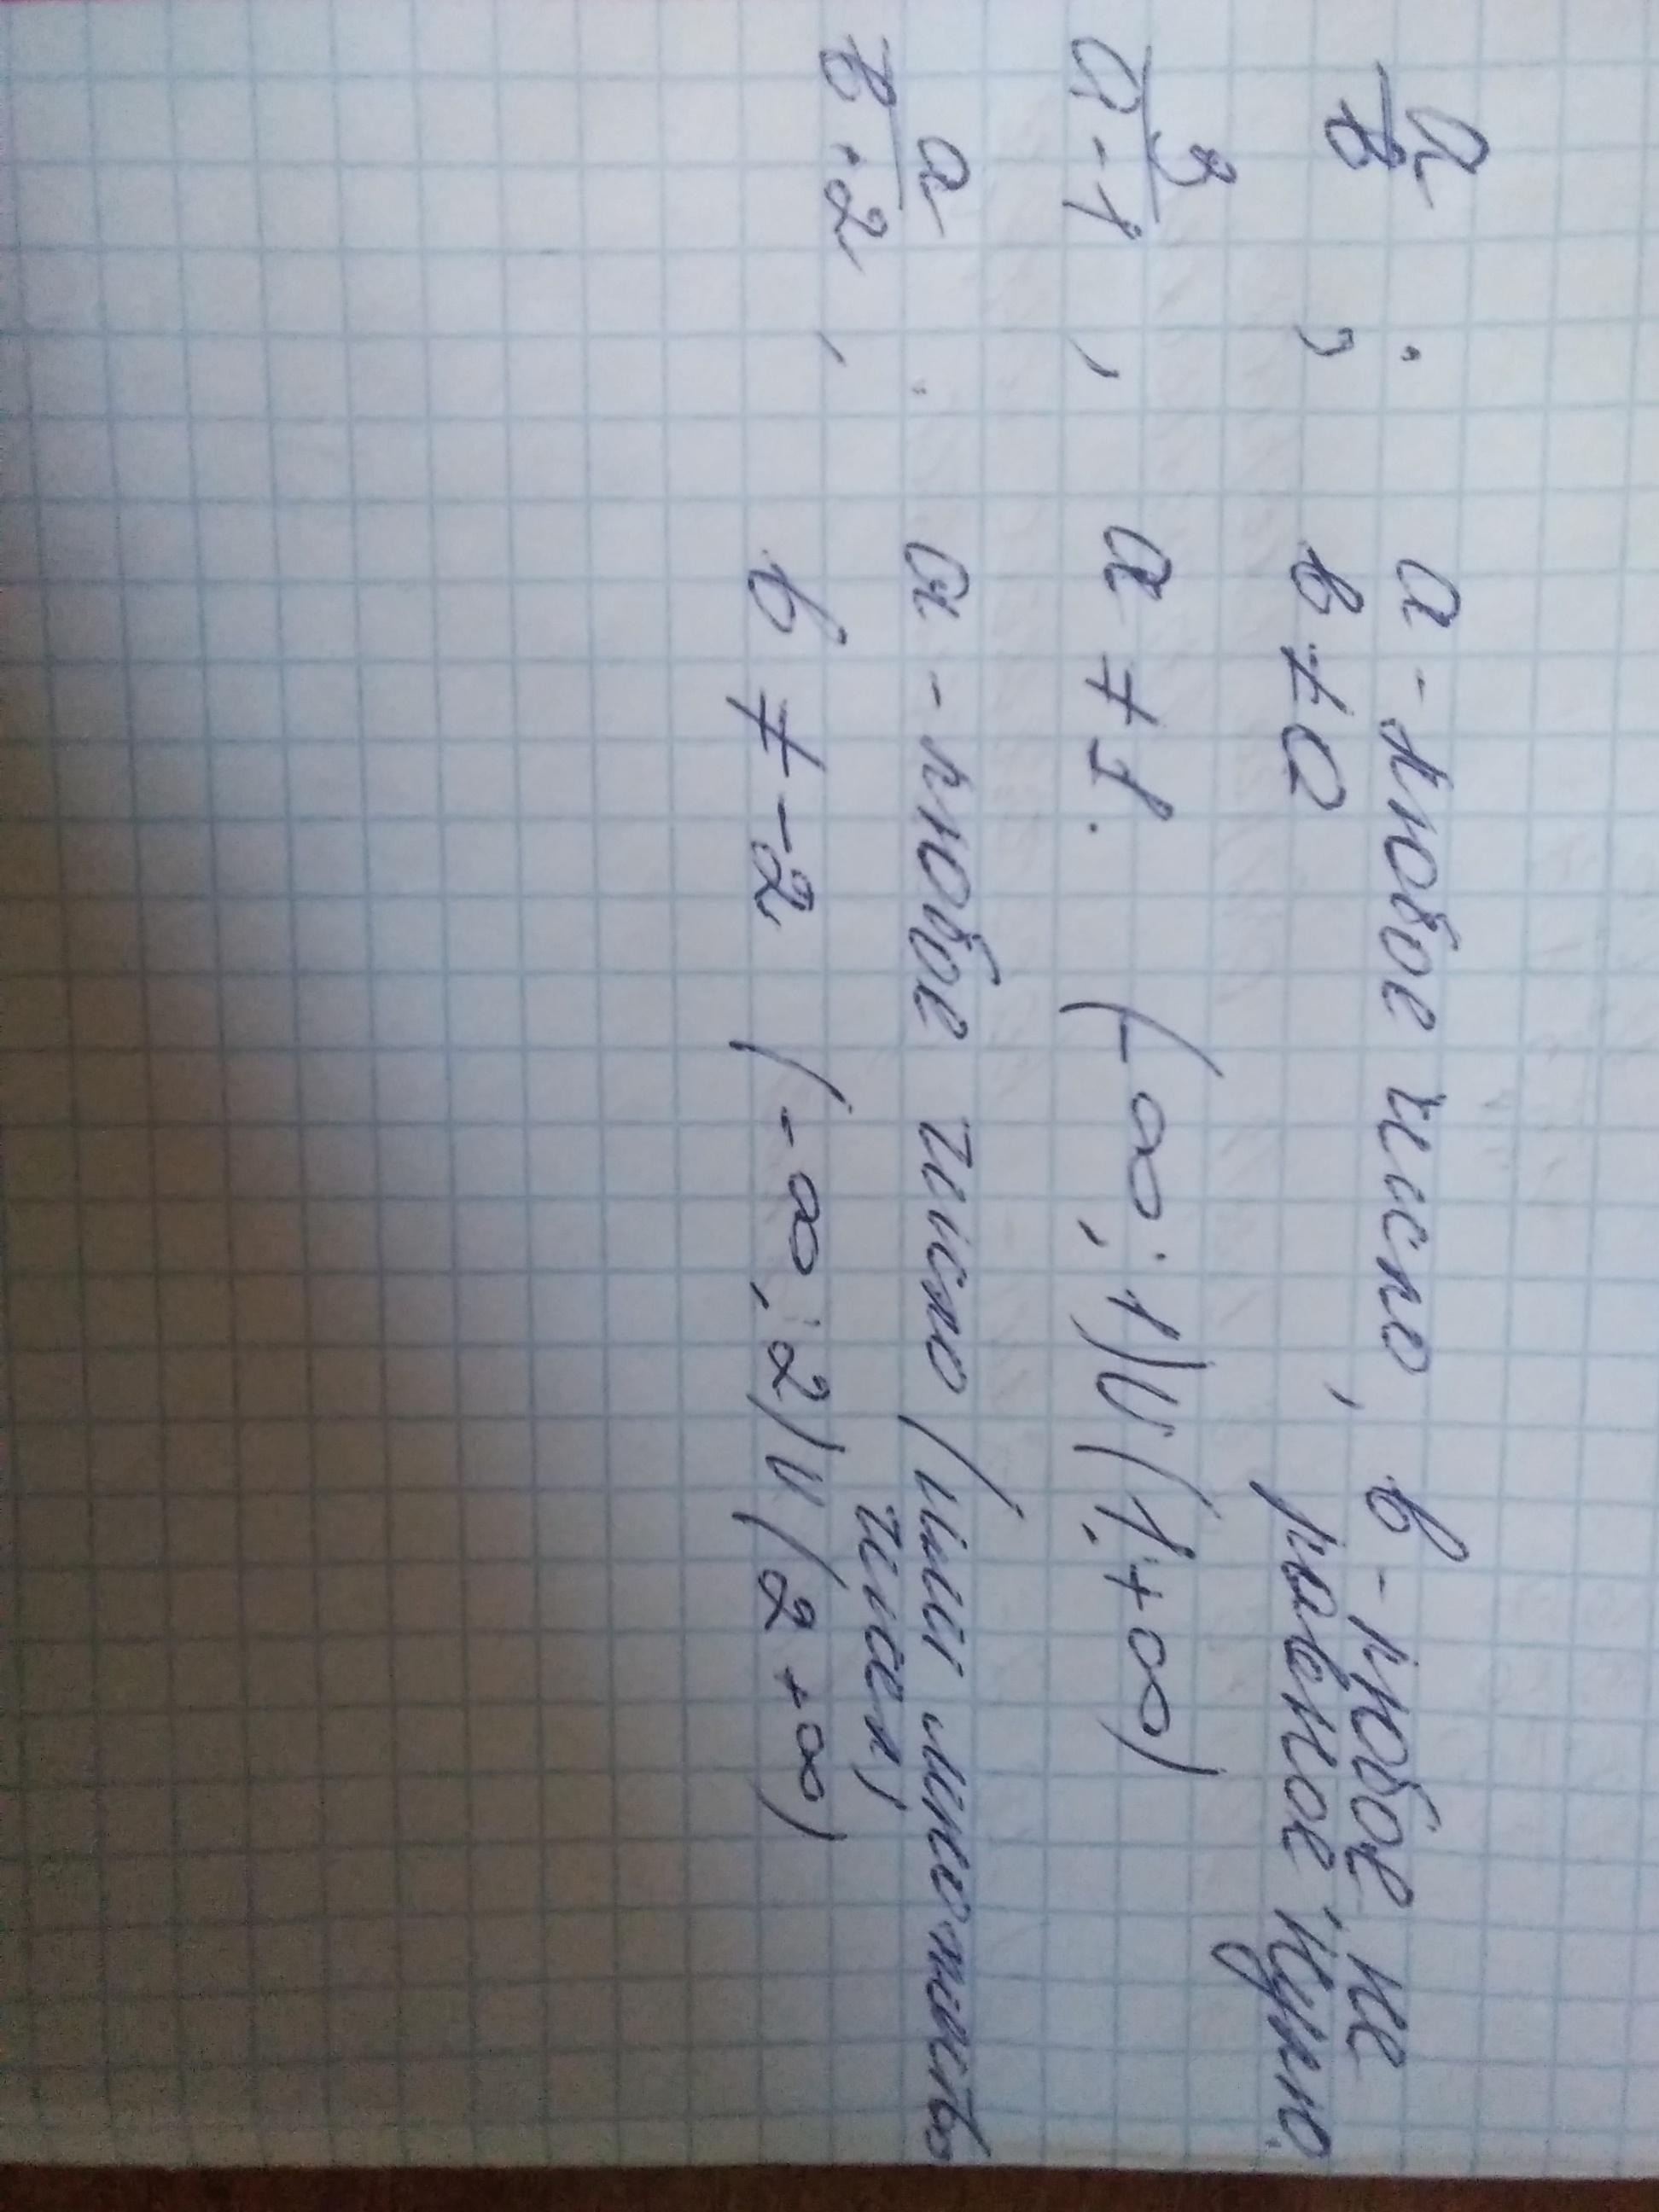 a/в ; a - любое число, в - любое, не
в ≠ 0 равное нулю.
3/(a - 1) , a ≠ 1. (-∞; 1) ∪ (1; +∞)
a/(в + 2) , a - любое число (или множество
чисел)
в ≠ -2 (-∞; 2) ∪ (2 +∞)